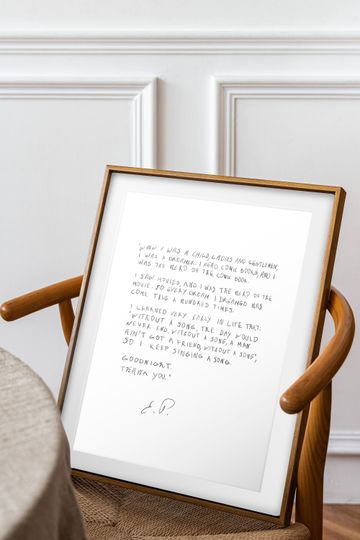 "WHEN I WAS A CHILD, LADIES AND GENTLEMEN,
I WAS A DREAMER. I READ COMIC BOOKS, AND I
WAS THE HERO OF THE COMIC BOOK.
I SAW MOVIES, AND I WAS THE HERO OF THE
MOVIE. SO EVERY DREAM I DREAMED HAS
COME TRUE A HUNDRED TIMES.
I LEARNED VERY EARLY IN LIFE THAT:
'WITHOUT A SONG, THE DAY WOULD
NEVER END. WITHOUT A SONG, A MAN
AIN'T GOT A FRIEND, WITHOUT A SONG',
SO I KEEP SINGING A SONG.
GOODNIGHT.
THANK YOU."
E.P.